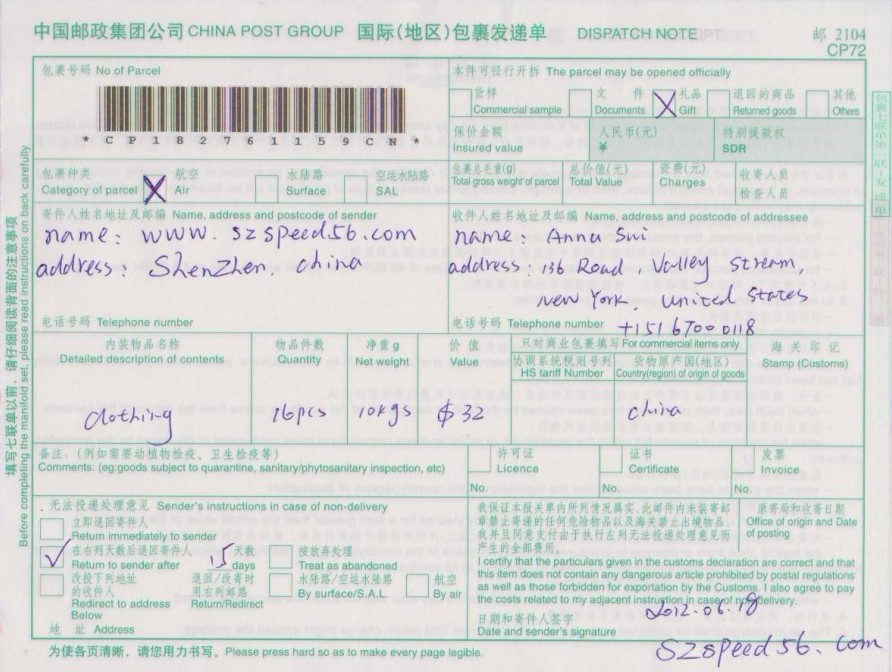 中国邮政集团公司 CHINA POST GROUP 国际(地区)包裹发递单 DISPATCH NOTE 邮 2104
CP72
包裹号码 No of Parcel
* C P 1 8 2 7 6 1 1 5 9 C N *
本件可径行开拆 The parcel may be opened officially
货样 Commercial sample
文 件 Documents
X 礼品 Gift
退回的商品 Returned goods
其他 Others
保价金额 Insured value
人民币(元) ¥
特别提款权 SDR
包裹种类 Category of parcel
X 航空 Air
水陆路 Surface
空运水陆路 SAL
包裹总毛重(g) Total gross weight of parcel
总价值(元) Total Value
资费(元) Charges
收寄人员
检查人员
寄件人姓名地址及邮编 Name, address and postcode of sender
name: www.szspeed56.com
address: ShenZhen, china
电话号码 Telephone number
收件人姓名地址及邮编 Name, address and postcode of addressee
name: Anna Sui
address: 136 Road, Valley Stream,
New York, United States
电话号码 Telephone number +151 6700 0118
内装物品名称 Detailed description of contents
物品件数 Quantity
净重g Net weight
价 值 Value
只对商业包裹填写 For commercial items only
协调系统税则号列 HS tariff Number
货物原产国(地区) Country(region) of origin of goods
海 关 印 记 Stamp (Customs)
clothing 16pcs 10kgs $32 china
备注:(例如需要动植物检疫、卫生检疫等)
Comments: (eg:goods subject to quarantine, sanitary/phytosanitary inspection, etc)
许可证 Licence
No.
证书 Certificate
No.
发票 Invoice
No.
无法投递处理意见 Sender's instructions in case of non-delivery
立即退回寄件人
Return immediately to sender
✓ 在右列天数后退回寄件人 15 天数
Return to sender after days
按放弃处理
Treat as abandoned
改投下列地址的收件人
Redirect to address Below
退回/改寄时用右列邮路
Return/Redirect
水陆路/空运水陆路
By surface/S.A.L.
航空
By air
地 址 Address
我保证本报关单内所列情况属实,此邮件内未装寄邮
章禁止寄递的任何危险物品以及海关禁止出境物品。
我并且同意支付由于执行左列无法投递处理意见而
产生的全部费用。
I certify that the particulars given in the customs declaration are correct and that
this item does not contain any dangerous article prohibited by postal regulations
as well as those forbidden for exportation by the Customs. I also agree to pay
the costs related to my adjacent instruction in case of non-delivery.
日期和寄件人签字
Date and sender's signature
2012.06.18
szspeed56.com
原寄局和收寄日期
Office of origin and Date of posting
为使各页清晰,请您用力书写。Please press hard so as to make every page legible.
填写七联单以前,请仔细阅读背面的注意事项
Before completing the manifold set, please read instructions on back carefully